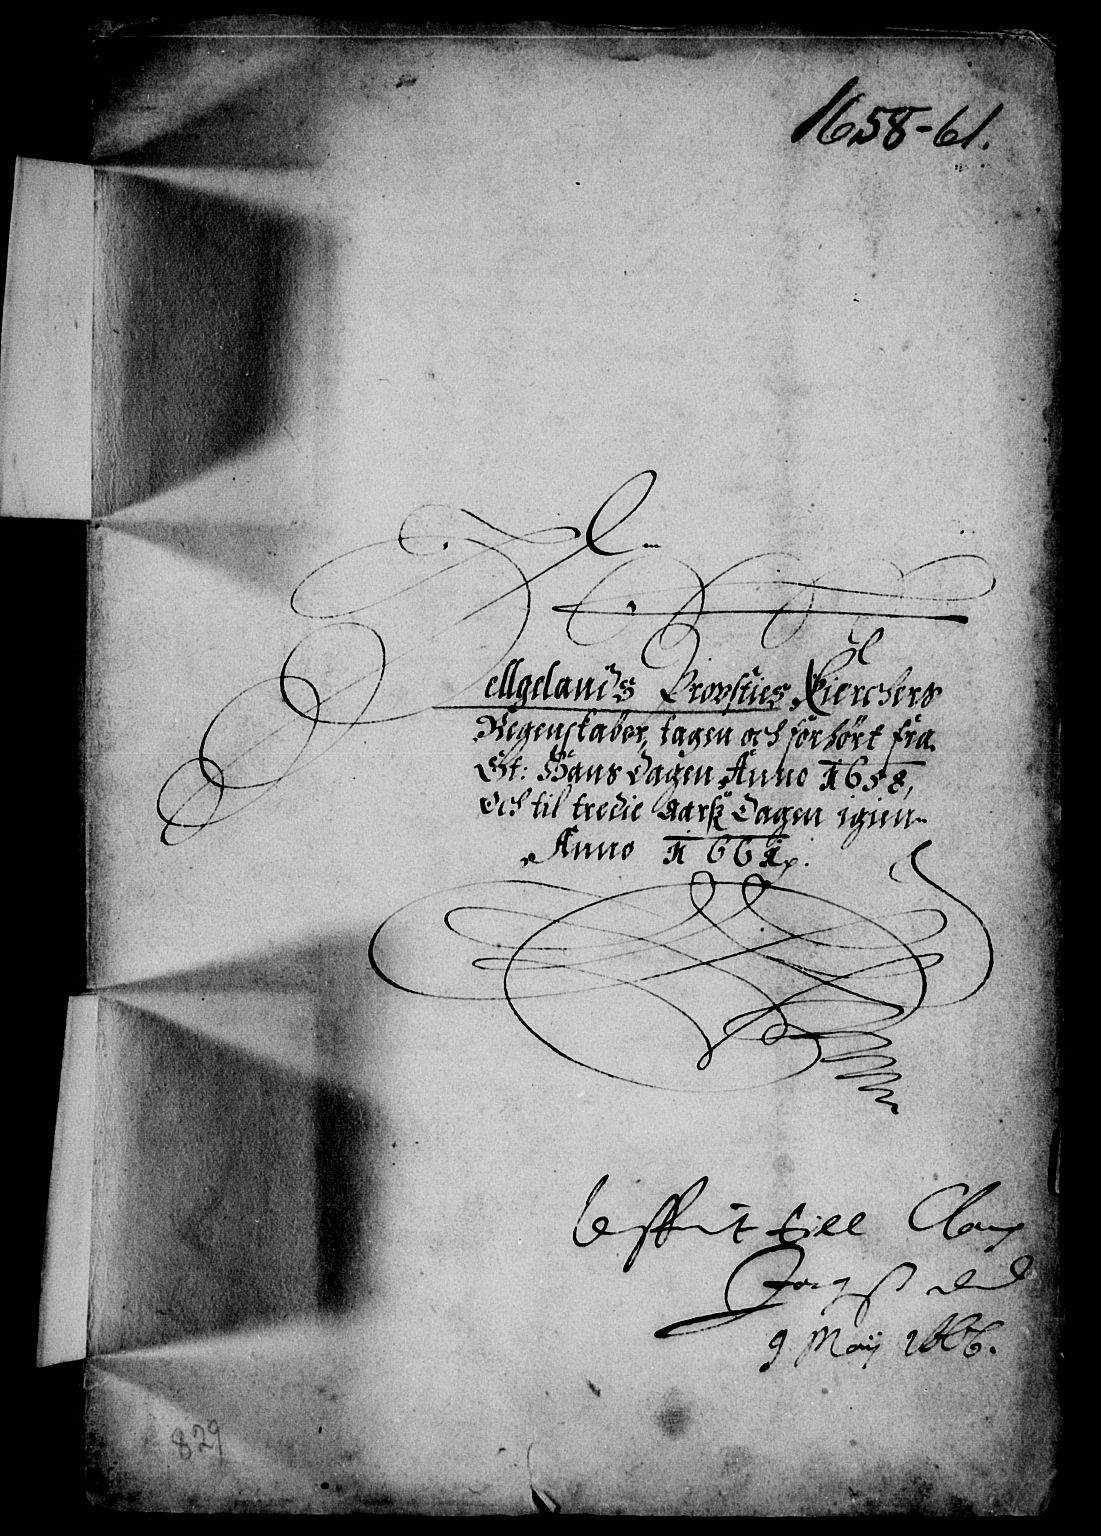 1658-61.
Hellgelandß Provsties Kierchers
Regenskaber, tagen och forhört fra
St: Hans Dagen Anno 1658,
Och til tredie Aarß Dagen igien
Anno 1661.
till Clauß
9 Maij 1666.
829